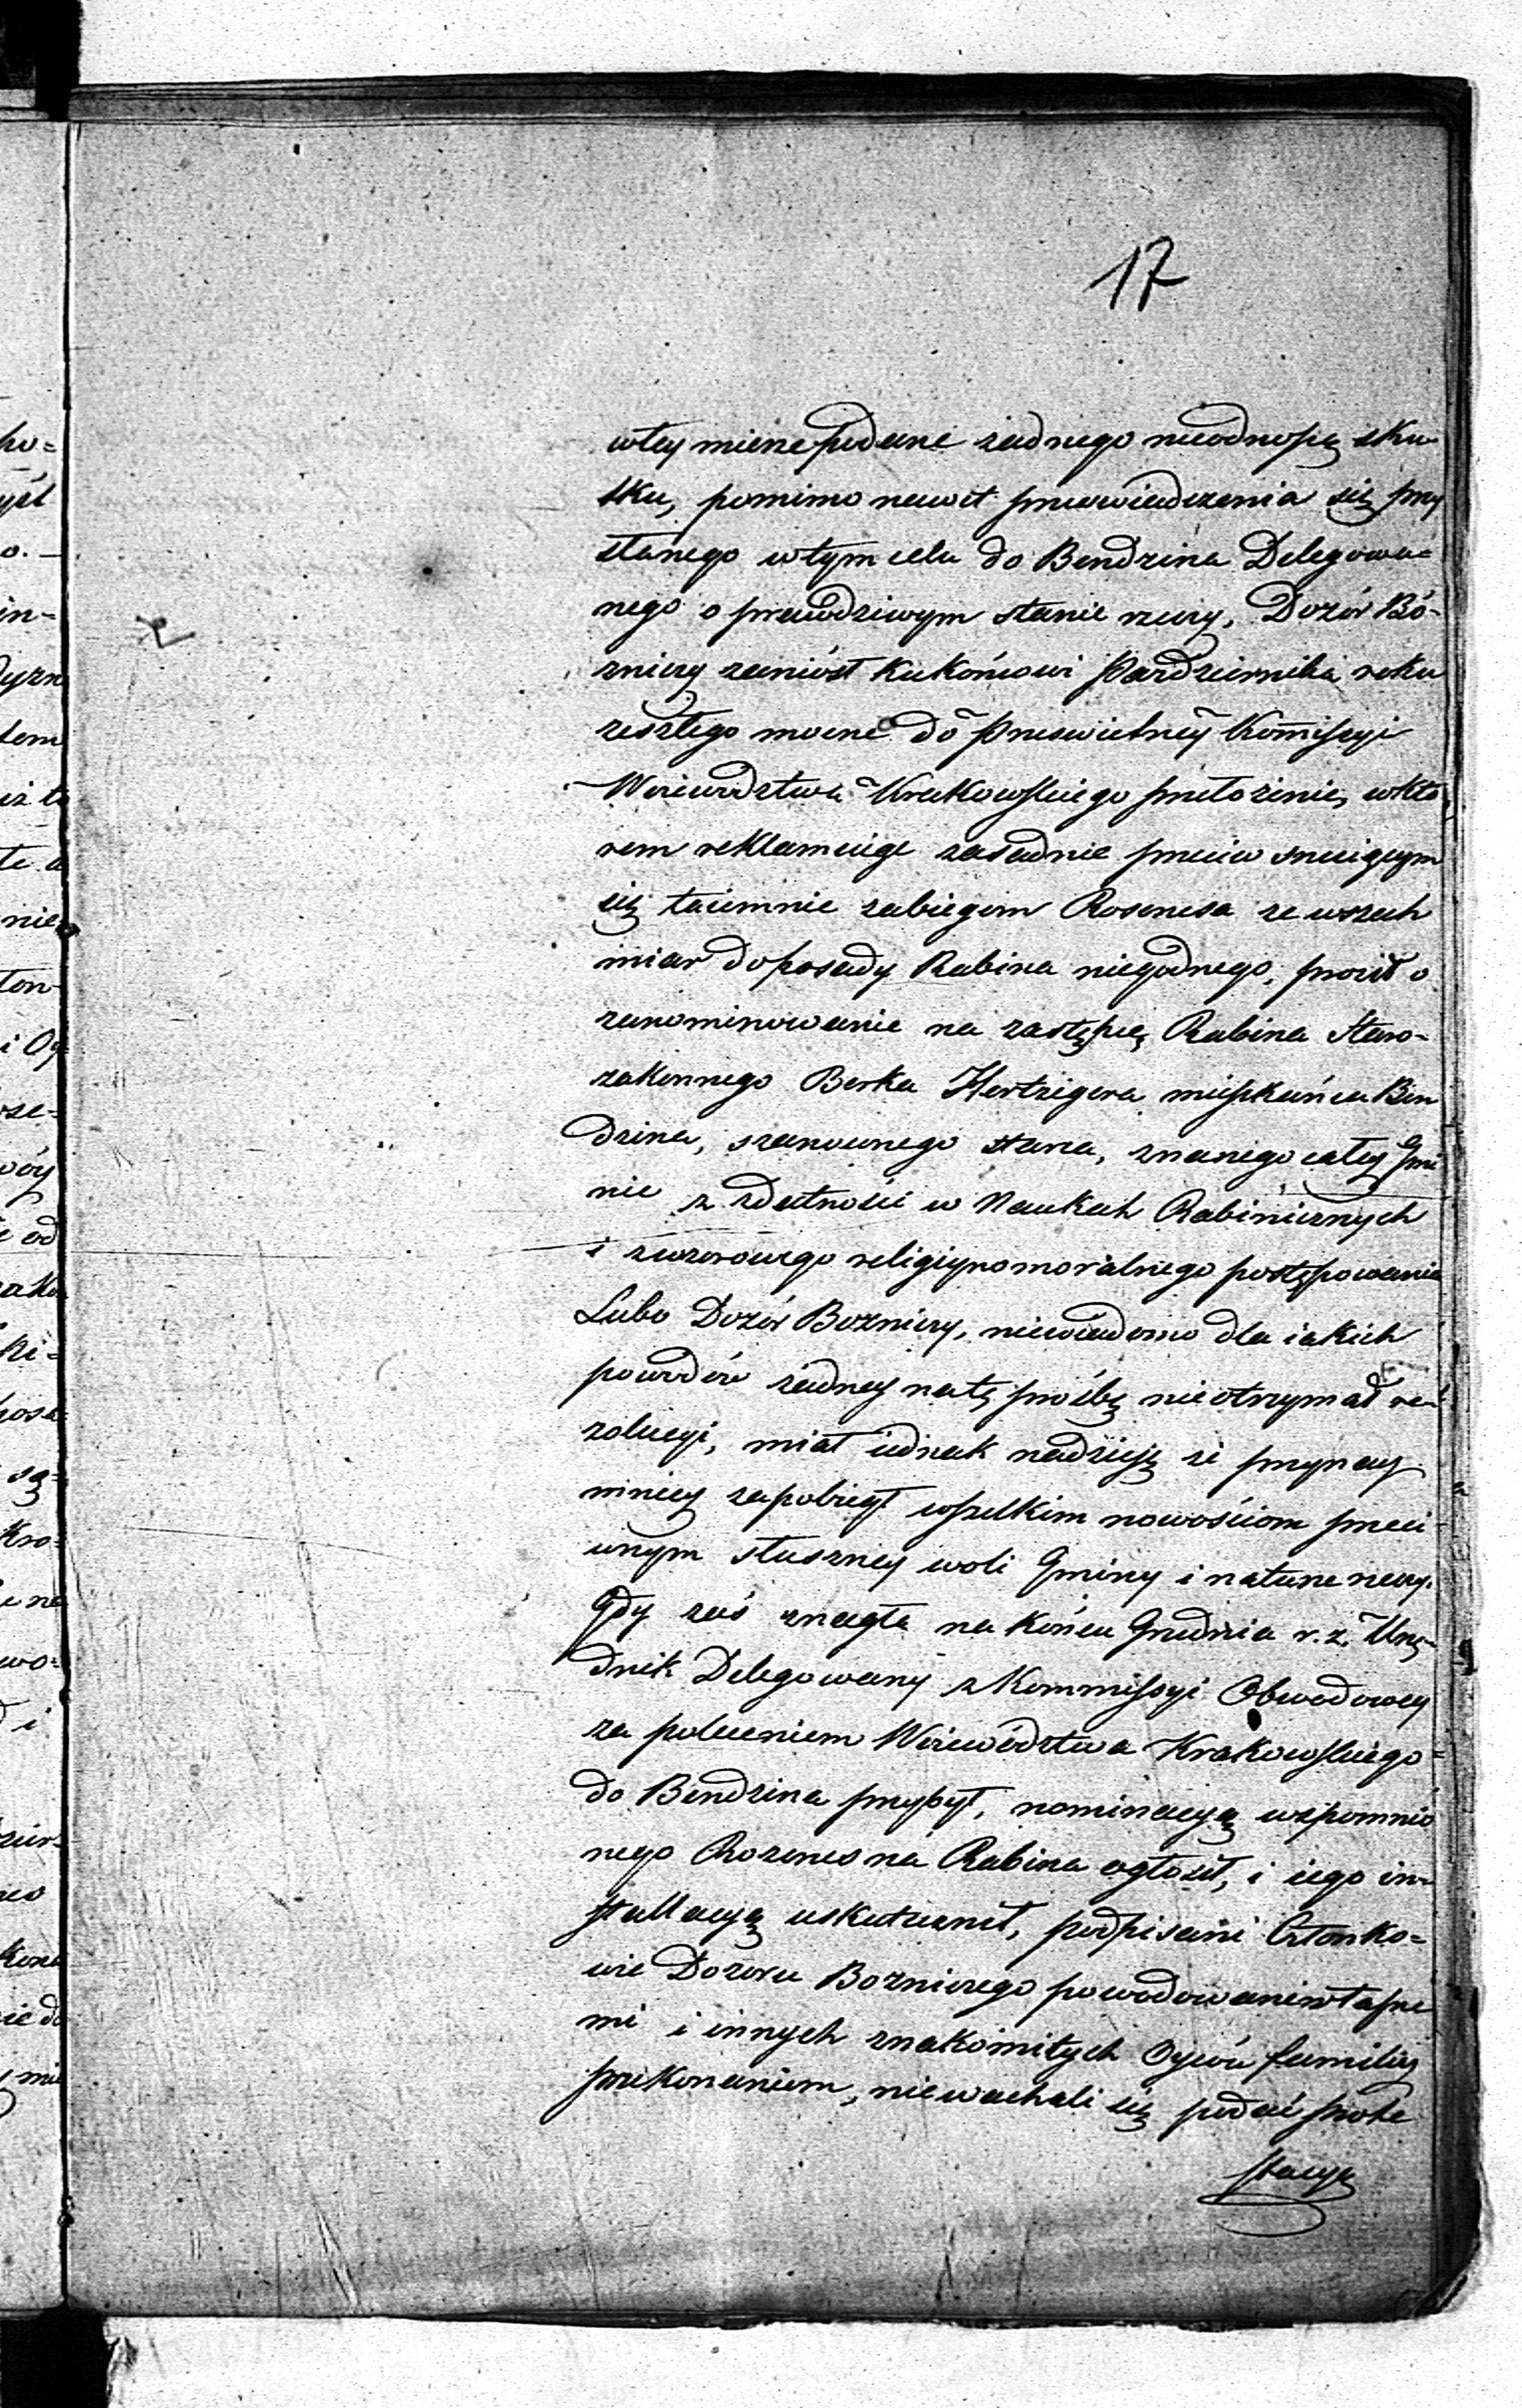 17
wtey mierze podanie żadnego nieodnoszą sku-
tku, pomimo nawet przeświadczenia się przy
słanego wtym celu do Bendzina Delegowa=
nego o prawdziwym stanie rzeczy, Dozór Bó-
zniczy zaniósł ku końcowi Pazdziernika roku
zeszłego mocne do Prześwietney Kommissyi
Woiewodztwa Krakowskiego przełożenie, wktó
rem reklamuiąc zasadnie przeciw snuiącym
się taiemnie zabiegom Rosenesa ze wszech
miar do posady Rabina niegodnego, prosił o
zanominowanie na zastępcę Rabina Staro-
zakonnego Berka Hertzigera mieszkańca Ben
dzina, szanownego starca, znanego całey Gmi
nie z zdatności w Naukach Rabinicznych
i zwzorowego religiynomoralnego postępowania
Lubo Dozór Bozniczy, niewiadomo dla iakich
powodów żadney natę prośbę nieotrzymał re-
zolucyi, miał iednak nadzieję że przynay-
mniey zapobiegł wszelkim nowościom przeci-
wnym słuszney woli Gminy i naturze rzeczy.
Gdy zaś znagła na końcu Grudnia r. z. Urzę-
dnik Delegowany z Kommissyi Obwodowey
za poleceniem Woiewództwa Krakowskiego=
do Bendzina przybył, nominacyą wspomnio
nego Rozenes na Rabina ogłosił, i iego in-
stallacyą uskutecznił, podpisani Członko=
wie Dozoru Bozniczego powodowani własne
mi i innych znakomitych Oyców familiy
przekonaniem, niewachali się podać prote
stacyą
po=
o. —
in-
dyzn
tem
nie
i Og
sze=
od
ki=
posa=
są=
Kro=
wo=
i